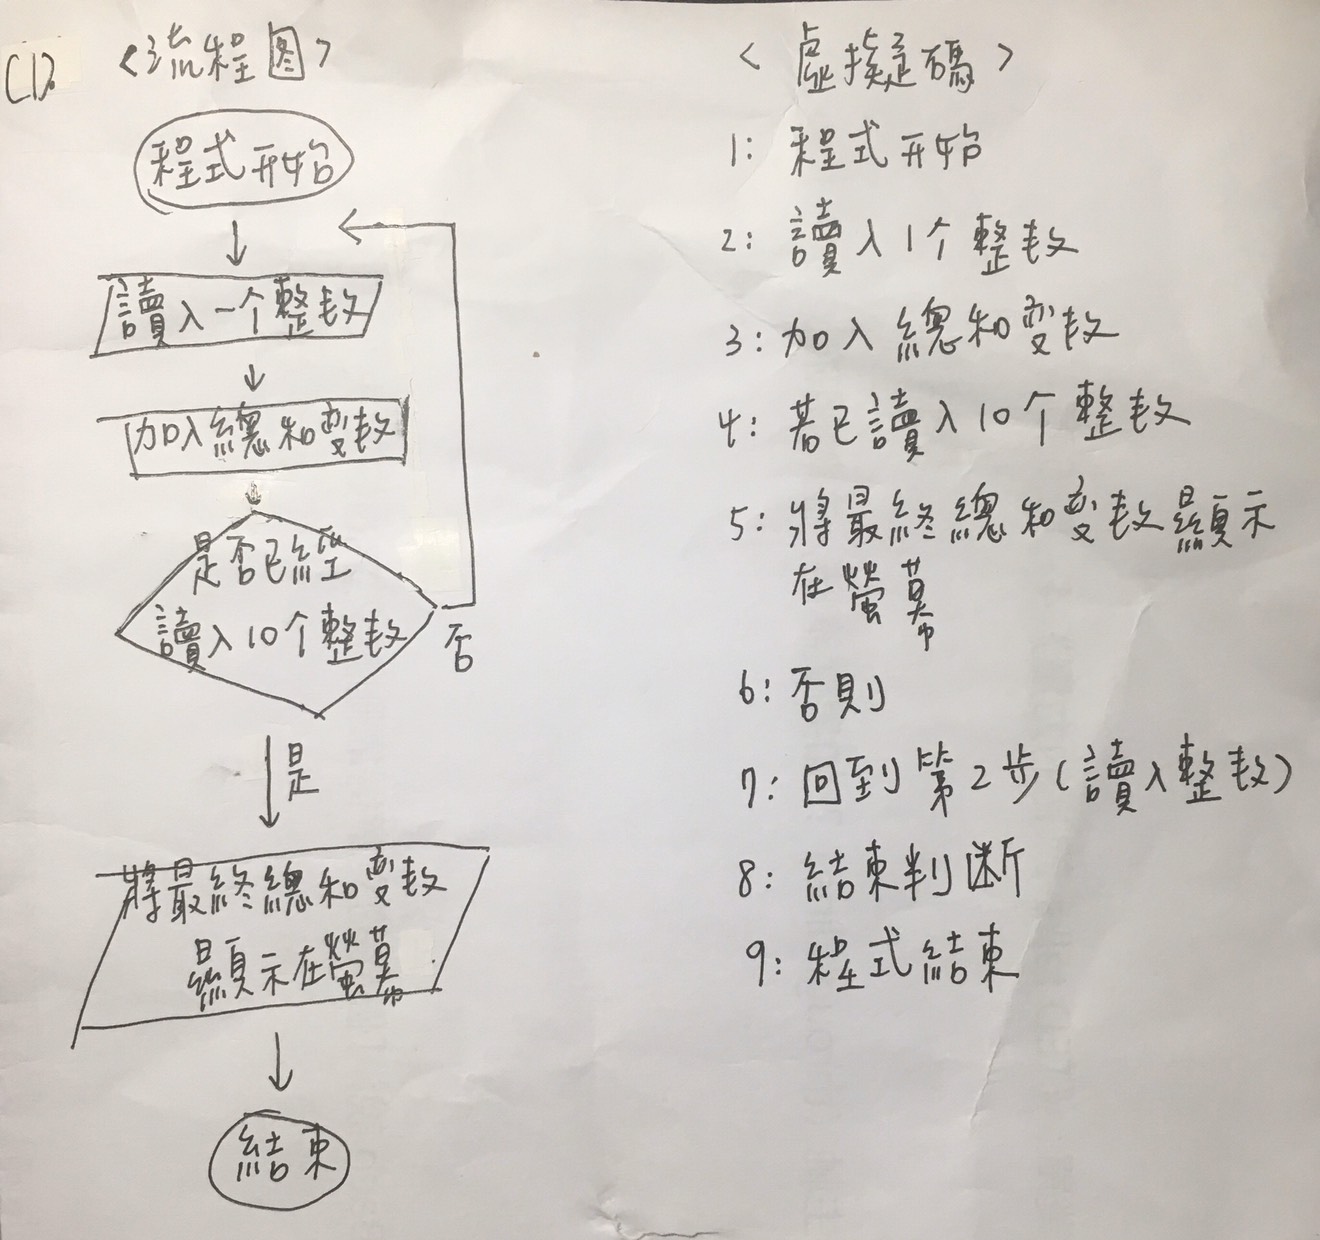 (1).
<流程图>
程式开始
讀入一个整数
加入總和変数
是否已經
讀入10个整数
否
是
將最終總和変数
顯示在螢幕
結束
<虛擬碼>
1: 程式开始
2: 讀入1个整数
3: 加入總和変数
4: 若已讀入10个整数
5: 將最終總和変数顯示
在螢幕
6: 否則
7: 回到第2步(讀入整数)
8: 結束判断
9: 程式結束